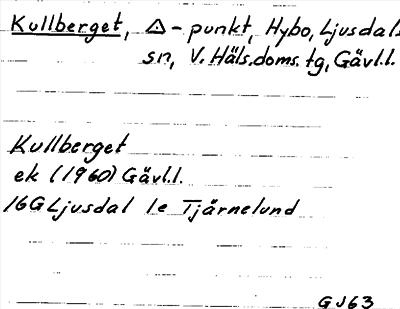 Kullberget, △-punkt, Hybo, Ljusdals
sn, V. Häls.doms.tg, Gävl.l.
Kullberget
ek (1960) Gävl.l.
16G Ljusdal 1e Tjärnelund
GJ63